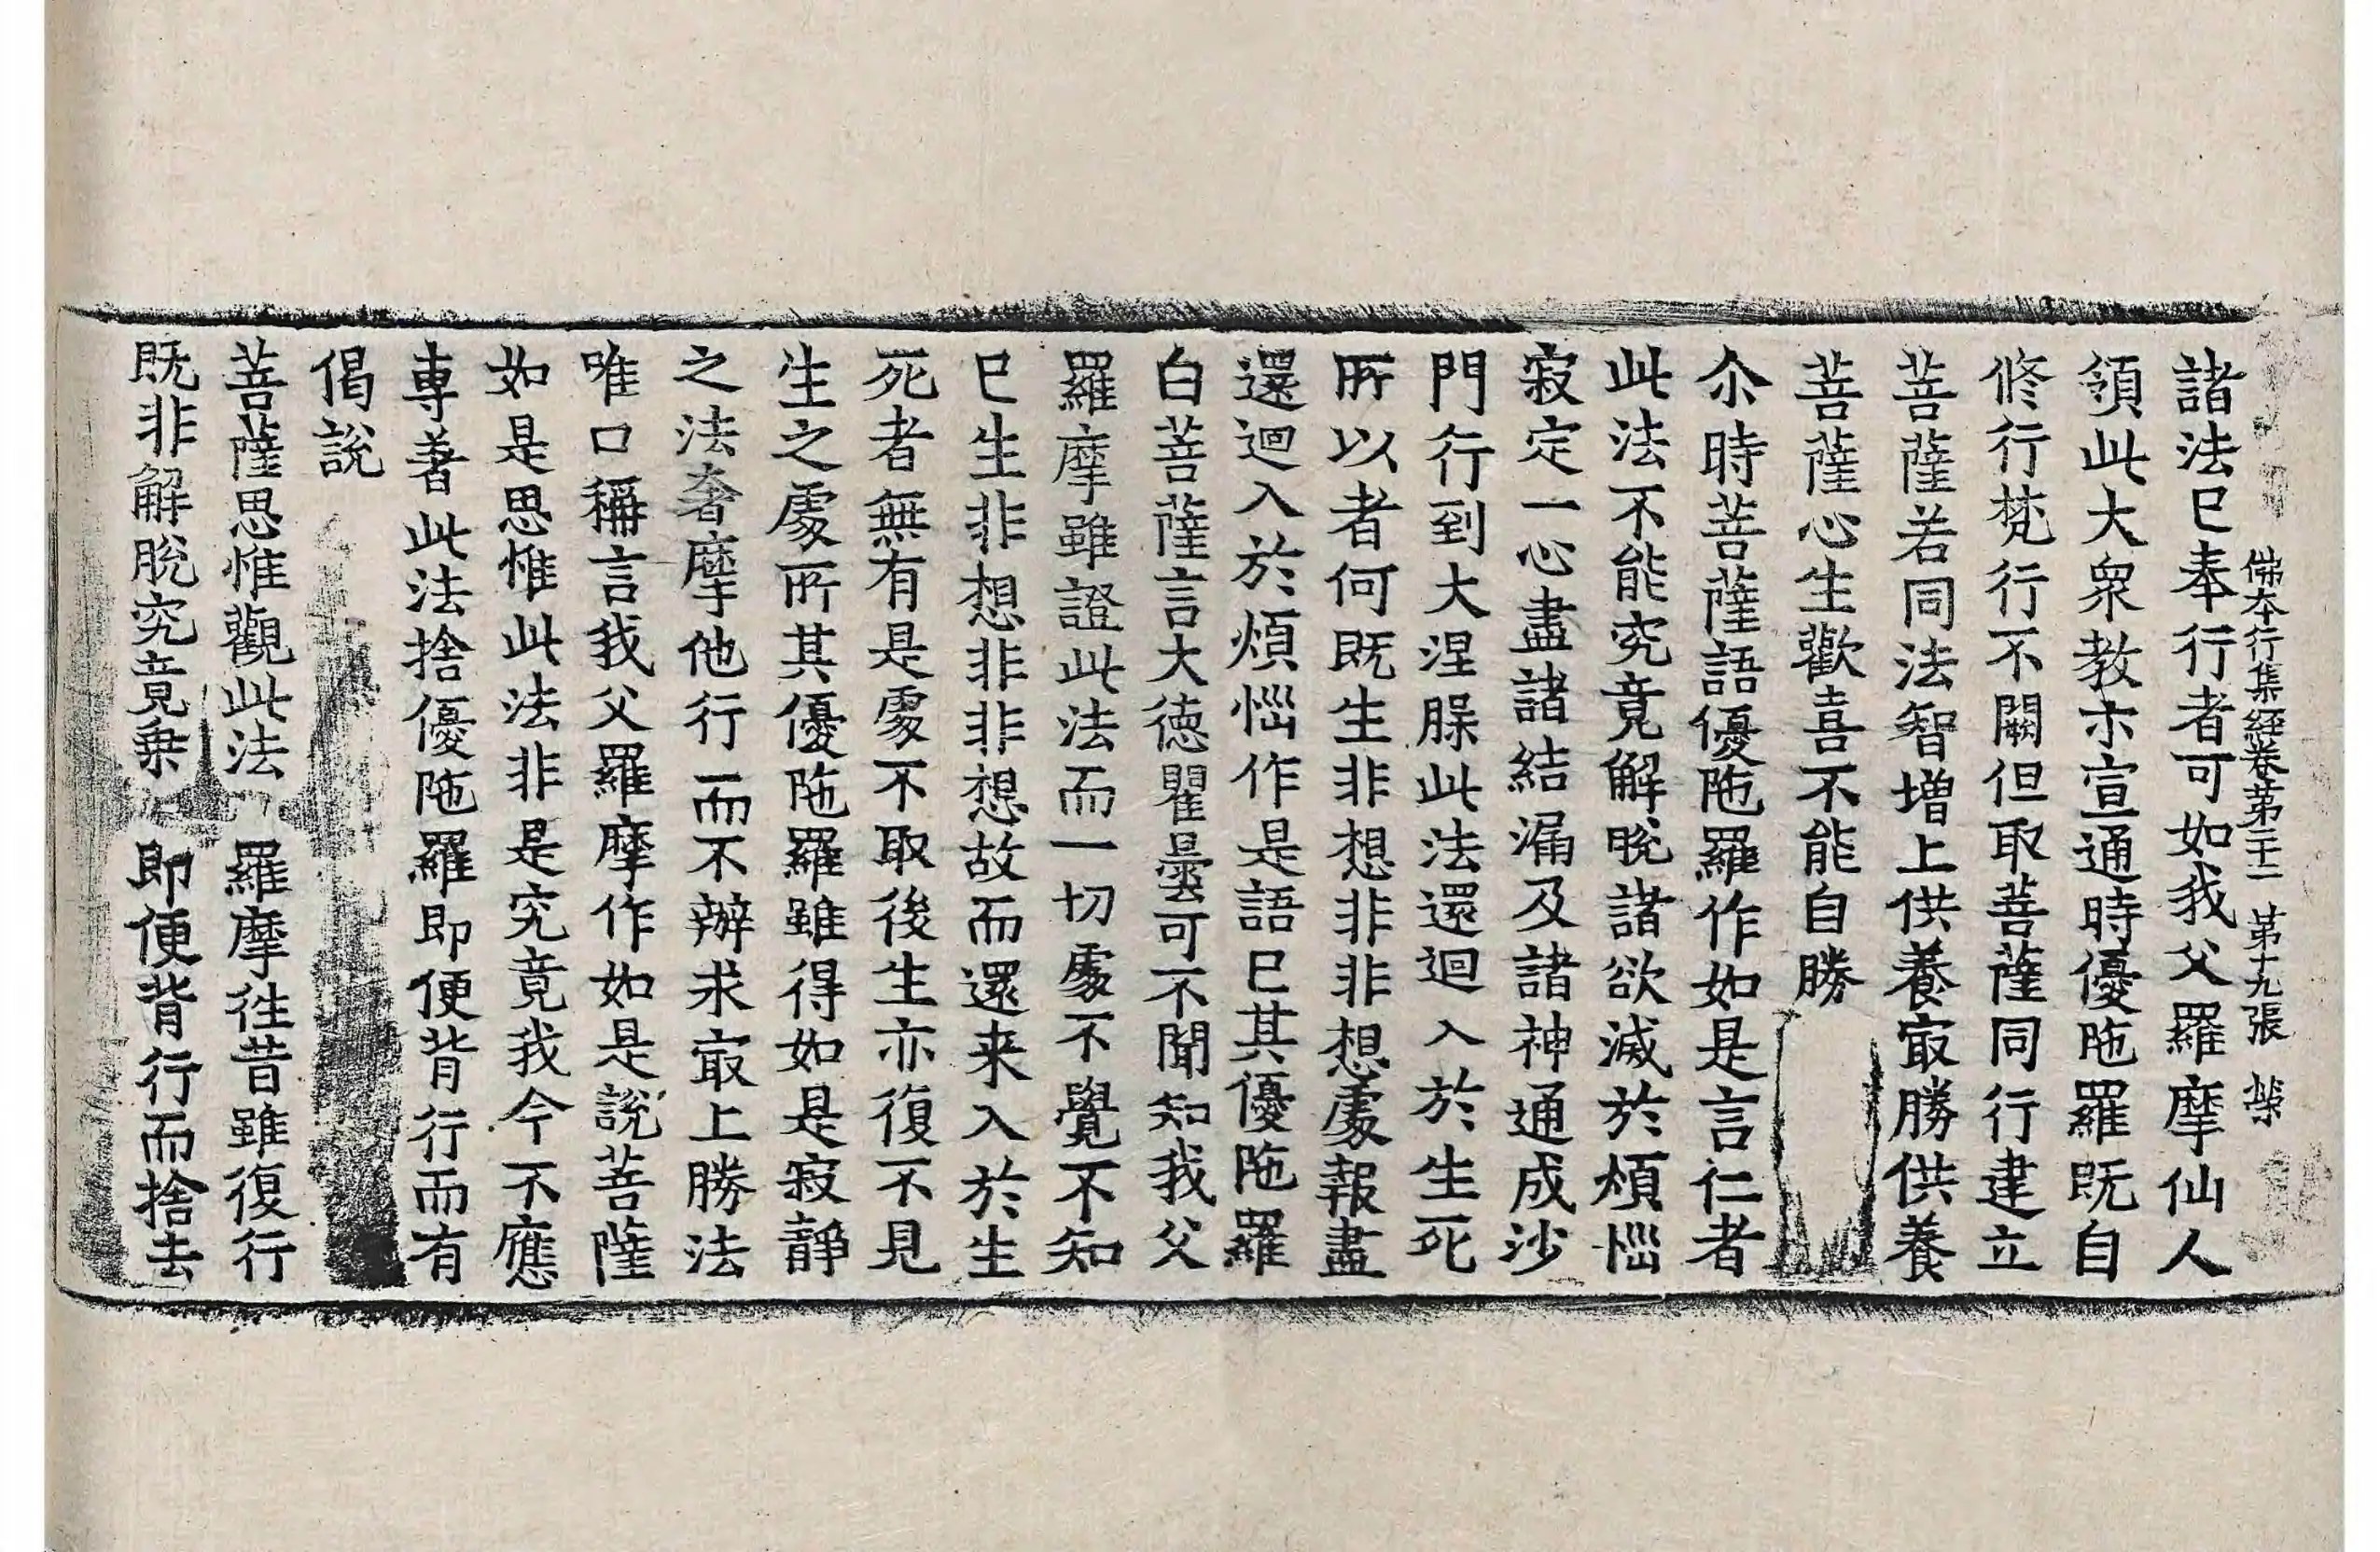 佛本行集經卷第二十二 第十九張 𣡸
諸法巳奉行者可如我父羅摩仙人
領此大衆教亦宣通時優陁羅既自
修行梵行不闕但取菩薩同行建立
菩薩若同法智增上供養㝡勝供養
菩薩心生歡喜不能自勝
尒時菩薩語優陁羅作如是言仁者
此法不能究竟解脫諸欲滅於煩惱
寂定一心盡諸結漏及諸神通成沙
門行到大涅槃此法還迴入於生死
所以者何既生非想非非想處報盡
還迴入於煩惱作是語巳其優陁羅
白菩薩言大德瞿曇可不聞知我父
羅摩雖證此法而一切處不覺不知
巳生非想非非想故而還来入於生
死者無有是處不取後生亦復不見
生之處所其優陁羅雖得如是寂靜
之法奢摩他行而不辦求㝡上勝法
唯口稱言我父羅摩作如是說菩薩
如是思惟此法非是究竟我今不應
專著此法捨優陁羅即便背行而有
偈說
菩薩思惟觀此法 羅摩徃昔雖復行
既非解脫究竟乗 即便背行而捨去